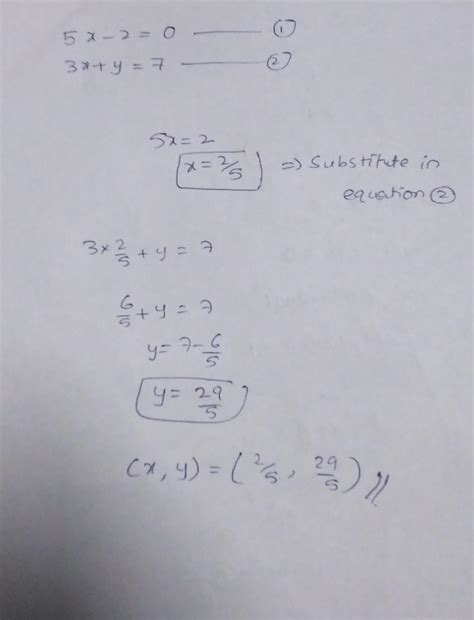 5x-2=0 —— ①
3x+y=7 —— ②
5x=2
x=2/5 ⇒ Substitute in
equation ②
3×2/5+y=7
6/5+y=7
y=7-6/5
y=29/5
(x,y)=(2/5, 29/5)//